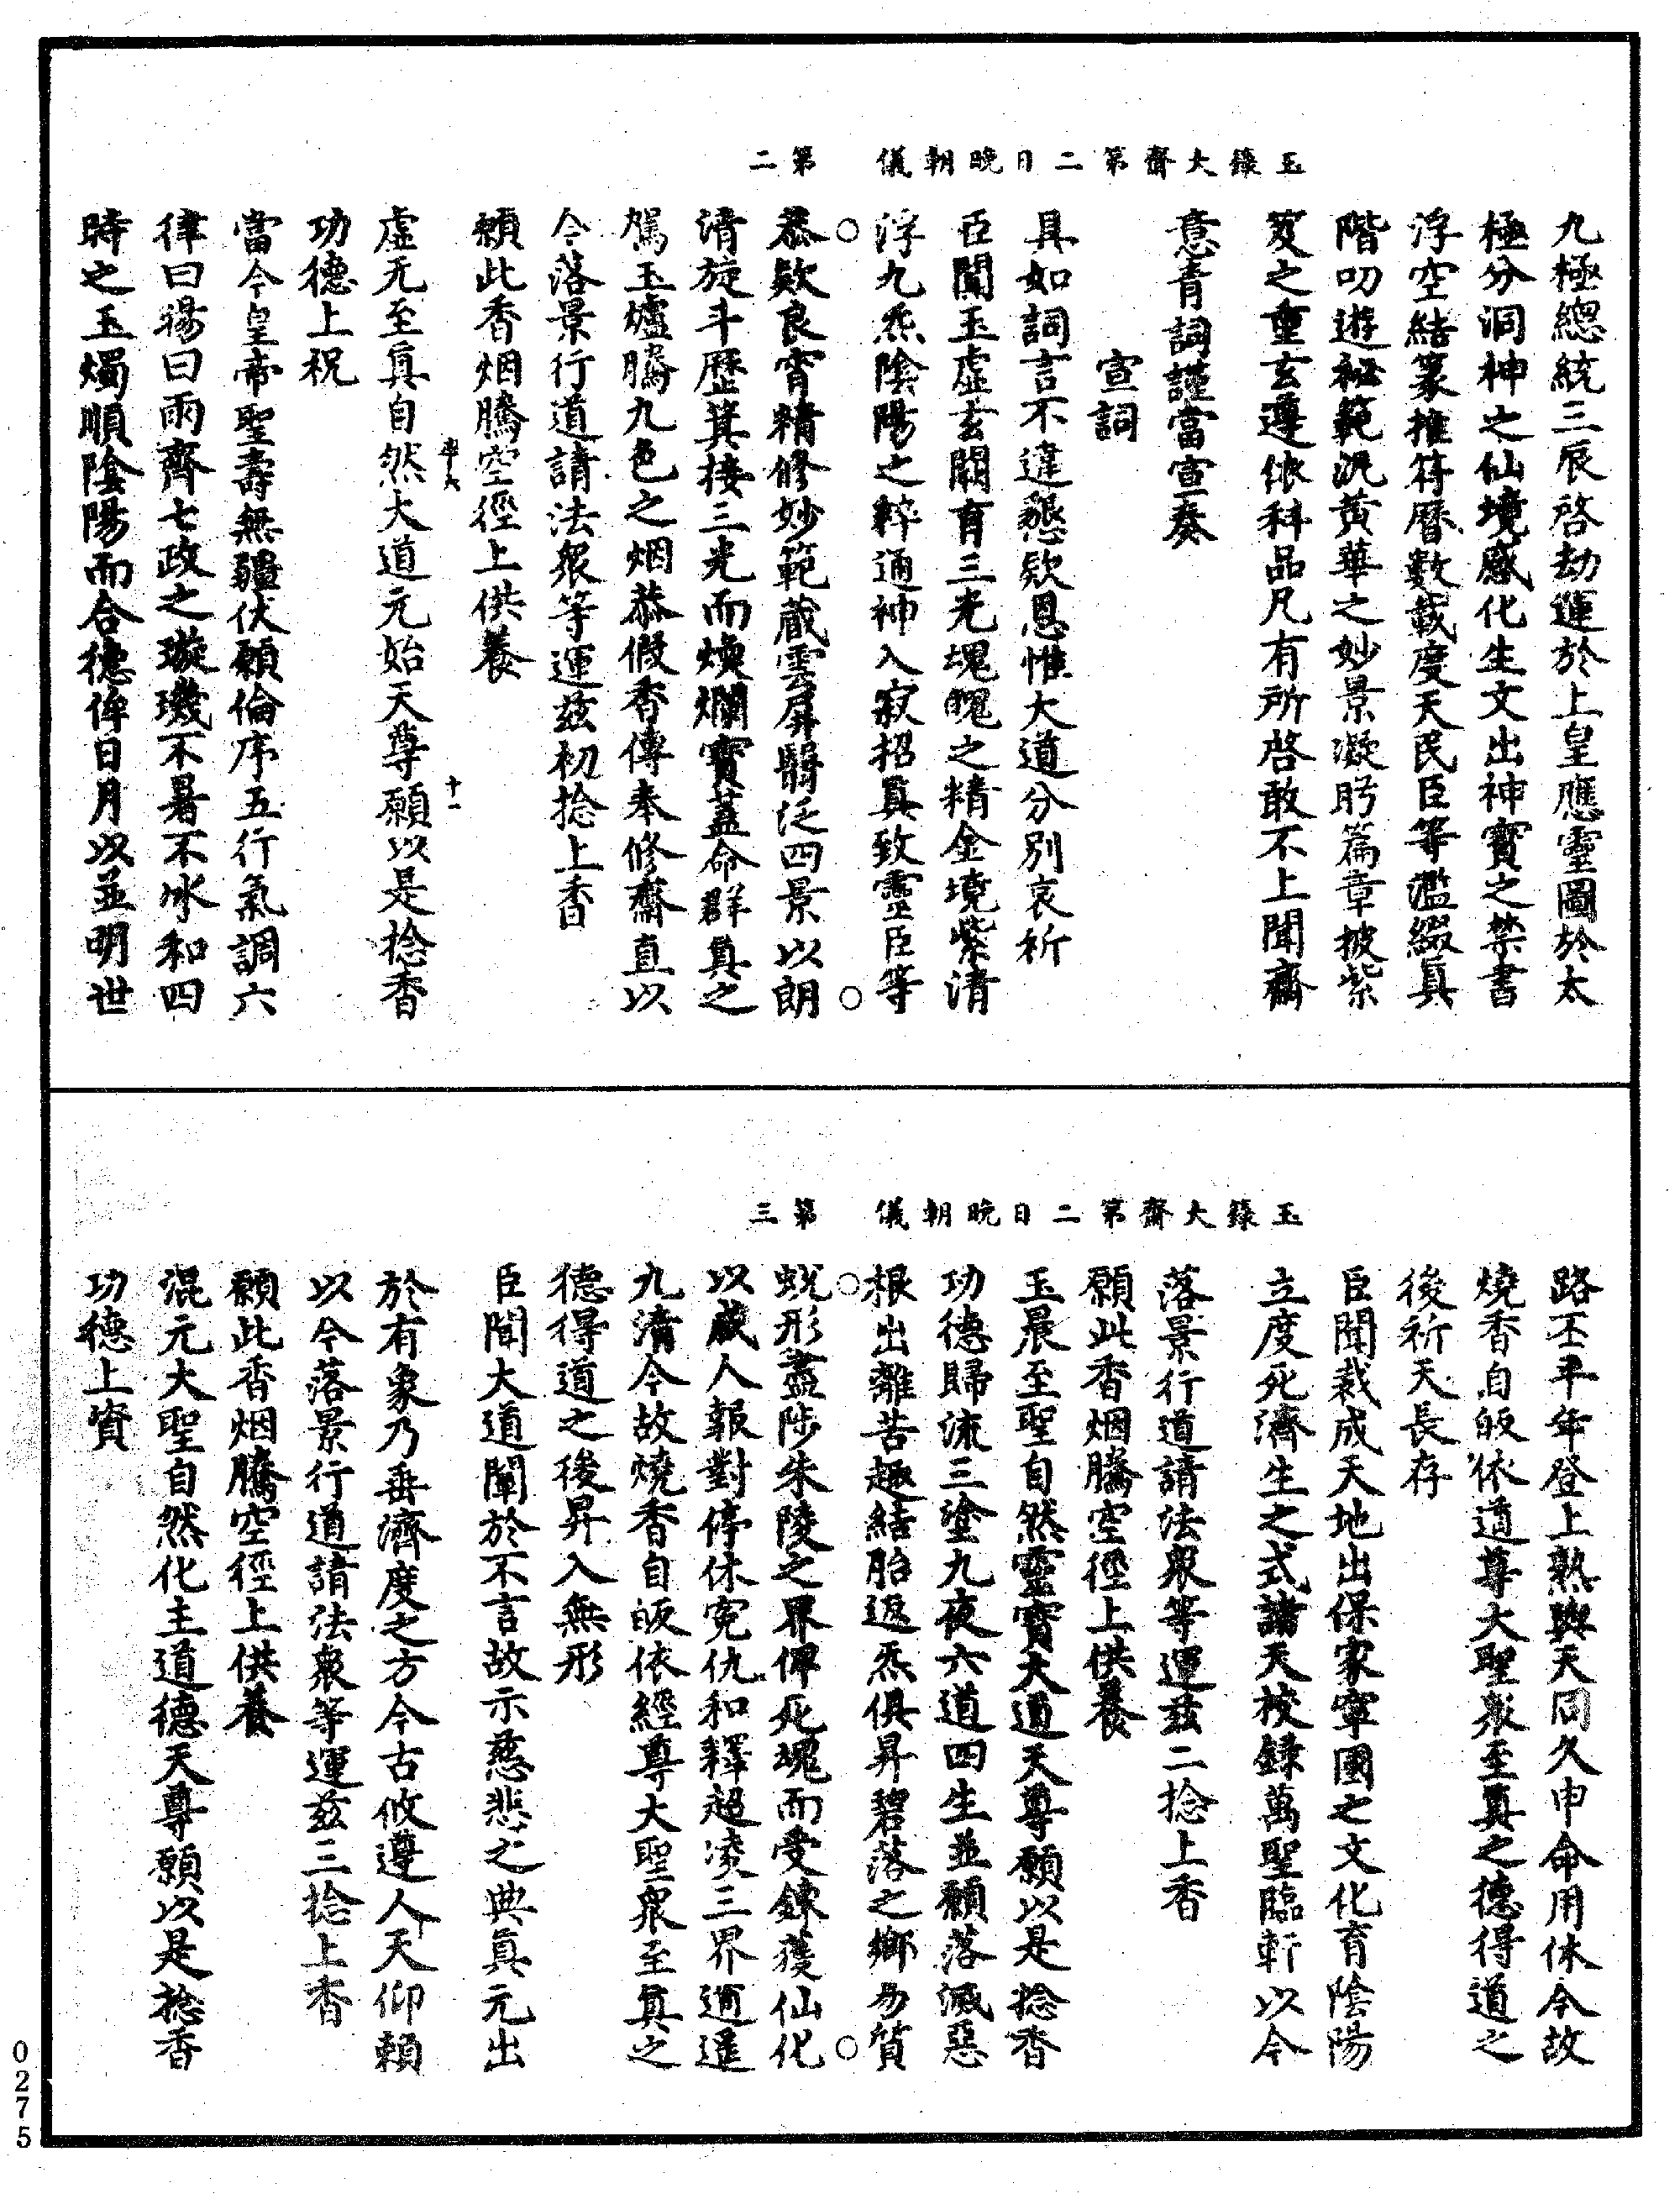 玉籙大齋第二日晚朝儀　第二
九極總統三辰啓劫運於上皇應靈圖於太
極分洞神之仙境感化生文出神寶之禁書
浮空結篆推符曆數載度天民臣等濫綴真
階叨遊祕範汎黄華之妙景凝眄篇章披紫
笈之重玄遵依科品凡有所啓敢不上聞齋
意青詞謹當宣奏
宣詞
具如詞言不違懇欵恩惟大道分別哀祈
臣聞玉虛玄闕育三光塊魄之精金境紫清
浮九炁陰陽之粹通神入寂招真致靈臣等
恭欵良宵精修妙範蕆雲屏翳泛四景以朗
清旋斗歷箕接三光而煥爛寶蓋命群真之
駕玉爐騰九色之烟恭假香傳奉修齋直以
今落景行道請法衆等運兹初捻上香
願此香烟騰空徑上供養
虛无至真自然大道元始天尊願以是捻香
功德上祝
當今皇帝聖壽無疆伏願倫序五行氣調六
律曰暘曰雨齊七政之璇璣不暑不冰和四
時之玉燭順陰陽而合德俾日月以並明世
十一
玉籙大齋第二日晚朝儀　第三
路丕平年登上熟與天同久申命用休今故
燒香自皈依道尊大聖衆至真之德得道之
後祈天長存
臣聞裁成天地出保家寧國之文化育陰陽
立度死濟生之式諸天校錄萬聖臨軒以今
落景行道請法衆等運兹二捻上香
願此香烟騰空徑上供養
玉晨至聖自然靈寶大道天尊願以是捻香
功德歸流三塗九夜六道四生並願落滅惡
根出離苦趣結胎返炁俱昇碧落之鄉易質
蛻形盡陟朱陵之界俾死魂而受鍊獲仙化
以成人報對停休寃仇和釋超凌三界逍遥
九清今故燒香自皈依經尊大聖衆至真之
德得道之後昇入無形
臣聞大道闡於不言故示慈悲之典真元出
於有象乃垂濟度之方今古攸遵人天仰賴
以今落景行道請法衆等運兹三捻上香
願此香烟騰空徑上供養
混元大聖自然化主道德天尊願以是捻香
功德上資
0275